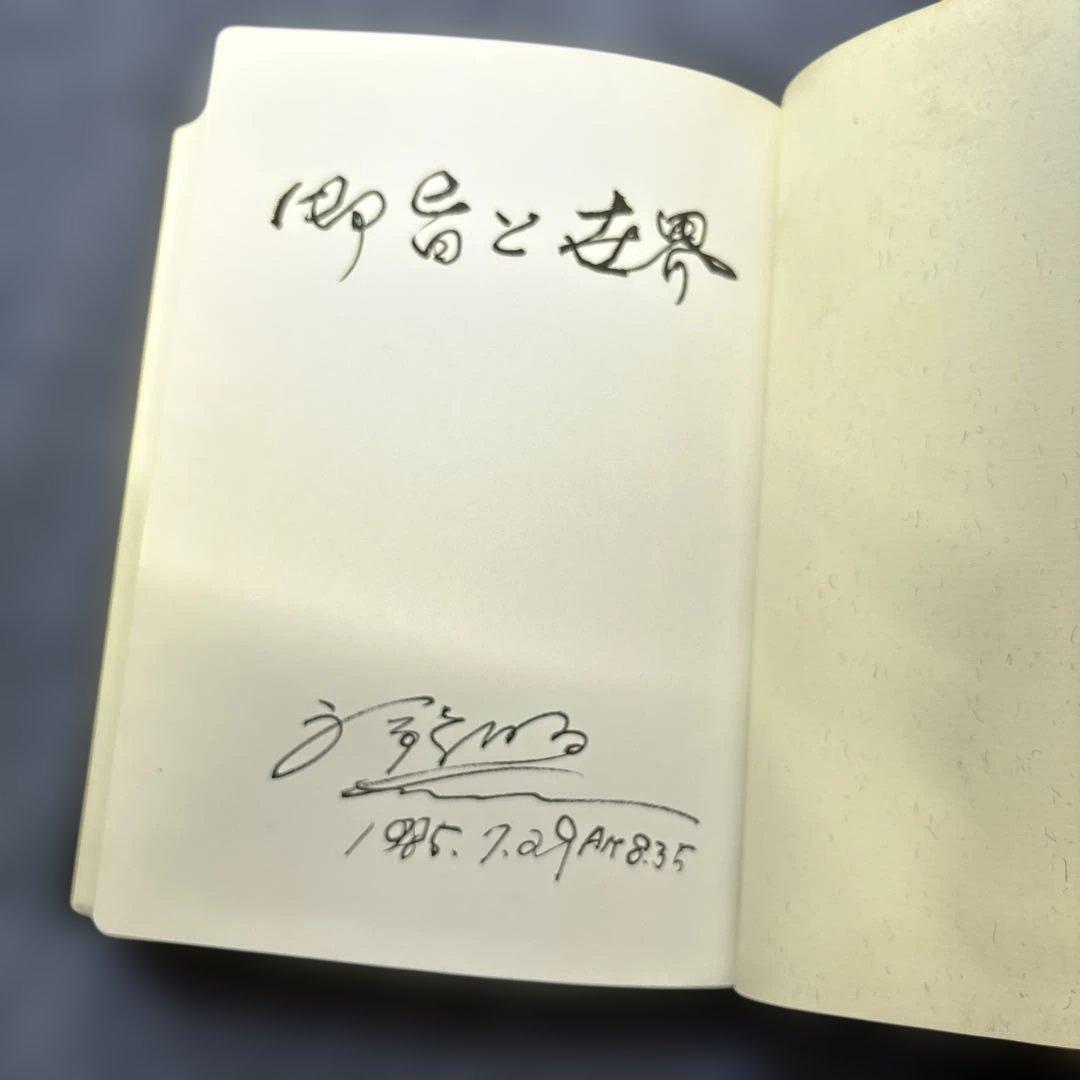 御旨と世界
文鮮明
1985. 7. 29 AM 8.35